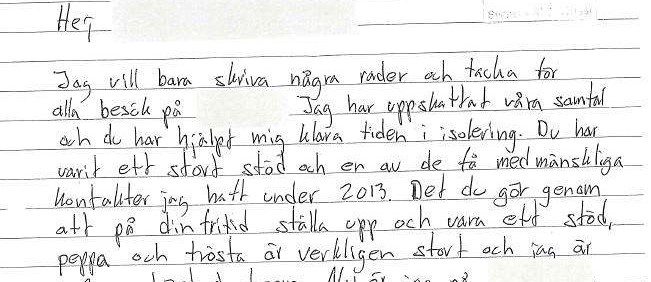 Hej
Jag vill bara skriva några rader och tacka för
alla besök på Jag har uppskattat våra samtal
och du har hjälpt mig klara tiden i isolering. Du har
varit ett stort stöd och en av de få medmänskliga
kontakter jag haft under 2013. Det du gör genom
att på din fritid ställa upp och vara ett stöd,
peppa och trösta är verkligen stort och jag är